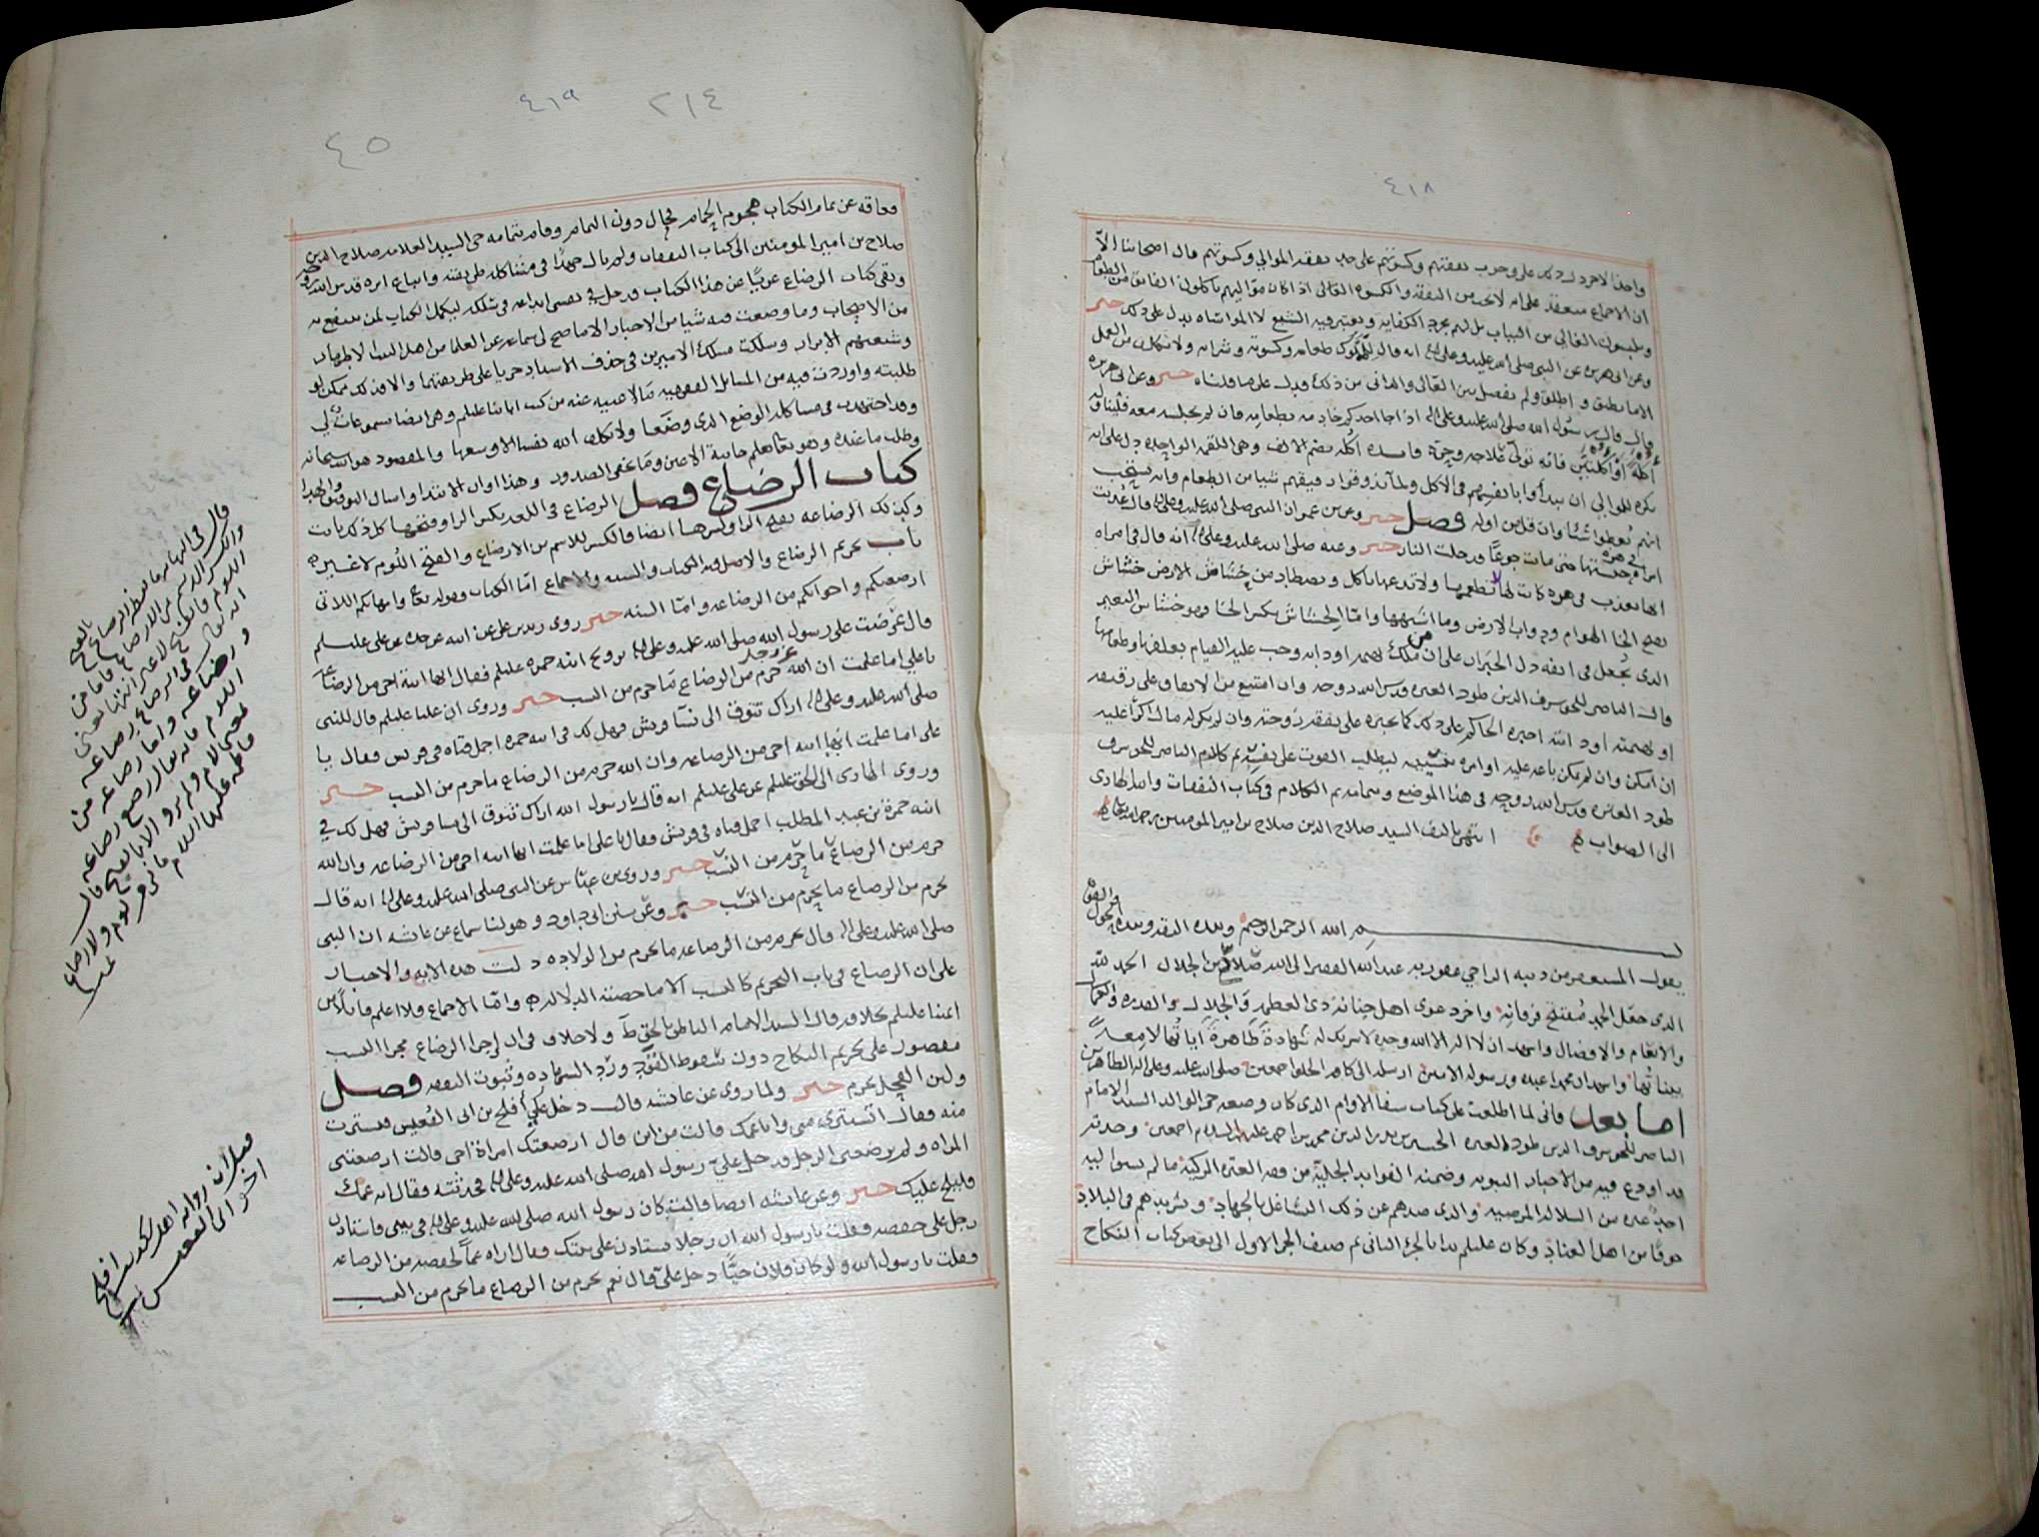 ٤١٨
واحدا الاخر دل ذلك على وجوب نفقتهم وكسوتهم على حد نفقة الموالي وكسوتهم قال اصحابنا الا
ان الاجماع منعقد على انه لا تجب من النفقة والكسوة الغالي اذا كان مواليهم ياكلون الفائق من الطعام
ويلبسون الغالي من الثياب بل لهم بحد الكفاية ويعتبر فيه الشبع لا المواساه يدل على ذلك خبر
وعن ابي هريرة عن النبي صلى الله عليه وعلى اله انه قال للمملوك طعامه وكسوته وشرابه ولا تكلف من العمل
الا ما يطيق واطلق ولم يفصل بين الغالي والداني من ذلك فدل على ما قلناه خبر وعن ابي هريرة
قال قال رسول الله صلى الله عليه وعلى اله اذا جا احدكم خادمه بطعامه فان لم يجلسه معه فليناوله
اكلة او اكلتين فانه تولى علاجه وحره فائدة اكلة بضم الالف وهي اللقمة الواحدة دل على انه
يكره للموالي ان يبدأوا بانفسهم في الاكل ولما
انهم يعطوا شيئا وان قل من اوله فصل خبر وعن بن عمر ان النبي صلى الله عليه وعلى اله قال عذبت
امراه في هره حبستها حتى ماتت جوعا فدخلت النار خبر وعنه صلى الله عليه وعلى اله انه قال في امراه
انها تعذب في هره كانت لها لا تطعمها ولا تدعها تاكل وتصطاد من خشاش الارض خشاش
بفتح الخا الهوام ودواب الارض وما اشبهها واما الخشاش بكسر الخا فهو خشاش البعير
الذي يجعل في انفه دل الخبران على ان من ملك بهيمة او دابه وجب عليه القيام بعلفها وطعامها
قال الناصر للحق شرف الدين طود العترة قدس الله روحه وان امتنع من الانفاق على رقيقه
او بهيمته او دابته اجبره الحاكم على ذلك كما يجبره على نفقة زوجته وان لم يكن له مال اكرا عليه
ان امكن وان لم يمكن باعه عليه او امره بتسييبه ليطلب القوت على نفسه تم كلام الناصر للحق شرف
طود العترة قدس الله روحه في هذا الموضع وتمامه تم الكلام في كتاب النفقات والله الهادي
الى الصواب انتهى تاليف السيد صلاح الدين صلاح بن امير المومنين رحمه الله تعالى
بسم الله الرحمن الرحيم وبالله الثقة وبيده الحول والقوة
يقول المستغفر من ذنبه الراجي عفو ربه عبد الله الفقير الى الله صلاح بن الجلال الحمد لله
الذي جعل الحمد مفتتح فرقانه واخر دعوى اهل جنانه ذي العظمة والجلال والقدرة والكمال
والانعام والافضال واشهد ان لا اله الا الله وحده لا شريك له شهادة ظاهرة اياتها لامعة
بيناتها واشهد ان محمدا عبده ورسوله الامين ارسله الى كافة الخلق اجمعين صلى الله عليه وعلى اله الطاهرين
اما بعد فاني لما اطلعت على كتاب شفا الاوام الذي كان وضعه حي الوالد السيد الامام
الناصر للحق شرف الدين طود العترة الحسين بن بدر الدين محمد بن احمد عليه السلام اجمعين وجدته
قد اودع فيه من الاخبار النبوية وضمنه الفوائد الجليلة من فقه العترة الزكية ما لم يسبق اليه
احد غيره من السلالة المرضية والذي صدهم عن ذلك التشاغل بالجهاد وتشريدهم في البلاد
خوفا من اهل العناد وكان عليلم بدا بالجزء الثاني ثم صنف الجزء الاول الى بعض كتاب النكاح
٤١٩
٢١٤
٤٥
فعاقه عن تمام الكتاب هجوم الحمام فحال دون التمام وقام بتمامه حي السيد العلامة صلاح الدين
صلاح بن امير المومنين الى كتاب النفقات ولم يال جهدا في مشاكلة طريقته واتباع اثره قدس الله روحه
وبقي كتاب الرضاع عريا عن هذا الكتاب فدخل في نفسي ابداعه في سلكه ليكمل الكتاب لمن ينتفع به
من الاصحاب وما وضعت فيه شيا من الاخبار الا ما صح لي سماعه عن العلما من اهل البيت الاطهار
وشيعتهم الابرار وسلكت مسلك الاميرين في حذف الاسناد جريا على طريقتهما والا فذلك ممكن لو
طلبته واوردت فيه من المسائل الفقهية ما لا غنية عنه من كتب ائمتنا عليلم وهي ايضا مسموعات لي
وقد اجتهدت في مشاكلة الوضع الذي وضعا ولا يكلف الله نفسا الا وسعها والمقصود هو الله سبحانه
وطلب ما عنده وهو تعالى يعلم خاينة الاعين وما تخفي الصدور وهذا اوان الابتدا واسال التوفيق والهدا
كتاب الرضاع فصل الرضاع في اللغة بكسر الرا وفتحها كل ذلك ثابت
وكذلك الرضاعة بفتح الرا وكسرها ايضا فالكسر للاسم من الارضاع والفتح اللوم لا غيره
باب تحريم الرضاع والاصل فيه الكتاب والسنه والاجماع اما الكتاب فقوله تعالى وامهاتكم اللاتي
ارضعنكم واخواتكم من الرضاعة واما السنه خبر روى زيد بن علي عن ابيه عن جده عن علي عليلم
قال عرضت على رسول الله صلى الله عليه وعلى اله تزويج ابنة حمزة عليلم فقال انها ابنة اخي من الرضاعة
يا علي اما علمت ان الله عز وجل حرم من الرضاع ما حرم من النسب خبر وروى ان عليا عليلم قال للنبي
صلى الله عليه وعلى اله اراك تتوق الى نسآ قريش فهل لك في ابنة حمزة اجمل فتاه في قريش فقال يا
علي اما علمت انها ابنه اخي من الرضاعه وان الله حرم من الرضاع ما حرم من النسب خبر
وروى الهادي الى الحق عليلم عن علي عليلم انه قال يا رسول الله اراك تتوق الى نسا قريش فهل لك في
ابنه حمزة بن عبد المطلب اجمل فتاه في قريش فقال يا علي اما علمت انها ابنه اخي من الرضاعه وان الله
حرم من الرضاع ما حرم من النسب خبر وروى بن عباس عن النبي صلى الله عليه وعلى اله انه قال
يحرم من الرضاع ما يحرم من النسب خبر وعن سنن ابي داود وهو لنا سماع عن عائشه ان النبي
صلى الله عليه وعلى اله قال يحرم من الرضاعه ما يحرم من الولاده دلت هذه الايه والاخبار
على ان الرضاع في باب التحريم كالنسب الا ما خصته الدلاله واما الاجماع فلا اعلم قائلا من
ائمتنا عليلم بخلافه قال السيد الامام الناطق بالحق ط ولا خلاف في ان اجرا الرضاع مجرا النسب
مقصور على تحريم النكاح دون سقوط القود ورد الشهاده وثبوت النفقه فصل
ولبن الفحل يحرم خبر ولما روي عن عائشه قالت دخل علي افلح بن ابي القعيس فستترت
منه فقال اتستترين مني وانا عمك قالت من اين قال ارضعتك امراة اخي قالت ارضعتني
المراه ولم يرضعني الرجل فدخل علي رسول الله صلى الله عليه وعلى اله فحدثته فقال انه عمك
فليلج عليك خبر وعن عائشه ايضا قالت كان رسول الله صلى الله عليه وعلى اله في بيتي فاستاذن
رجل على حفصه فقلت يا رسول الله ان رجلا يستاذن على بيتك فقال اراه عما لحفصه من الرضاعه
فقلت يا رسول الله ولو كان فلان حيا دخل علي قال نعم يحرم من الرضاع ما يحرم من النسب